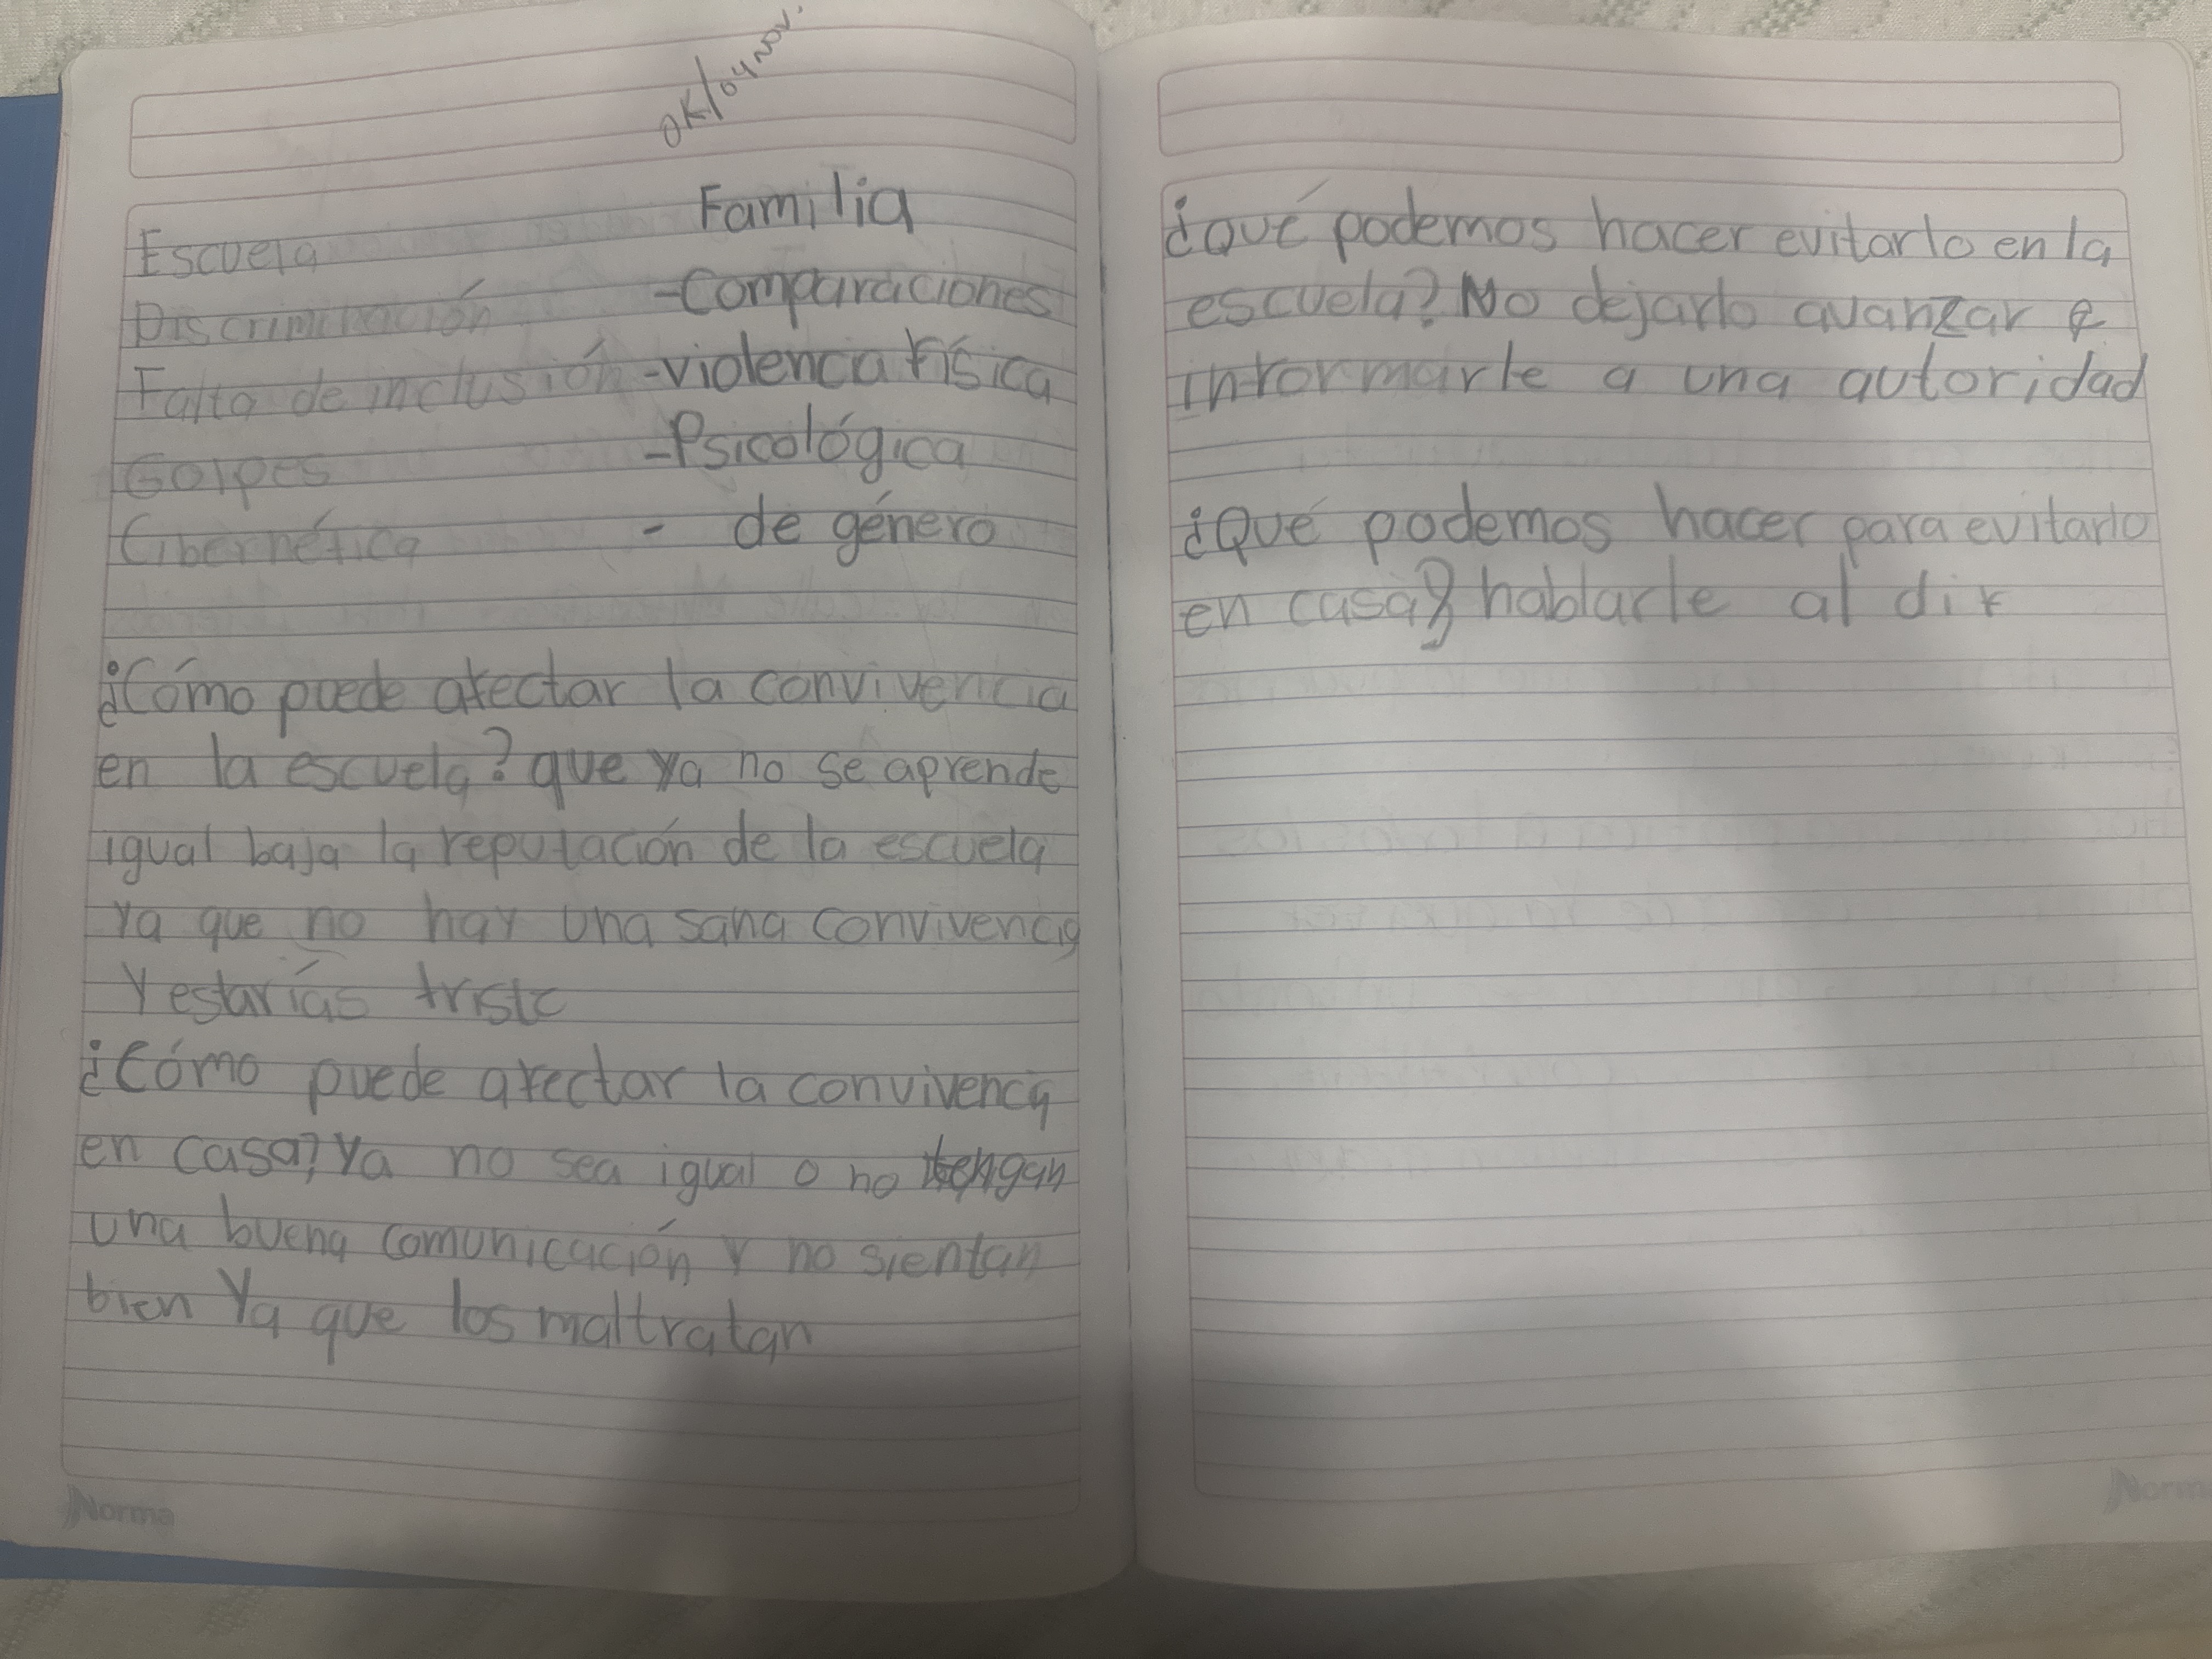 ok/04 nov.
Familia
Escuela
Discriminación -Comparaciones
Falta de inclusión -violenca física
Golpes -Psicológica
Cibernética - de género
¿Cómo puede afectar la convivencia
en la escuela? que ya no se aprende
igual baja la reputación de la escuela
ya que no hay una sana convivencia
y estarías triste
¿Cómo puede afectar la convivenca
en casa? Ya no sea igual o no tengan
una buena comunicación y no sientan
bien Ya que los maltratan
Norma
¿qué podemos hacer evitarlo en la
escuela? No dejarlo avanzar e
informarle a una autoridad
¿Qué podemos hacer para evitarlo
en casa? hablarle al dif
Norma